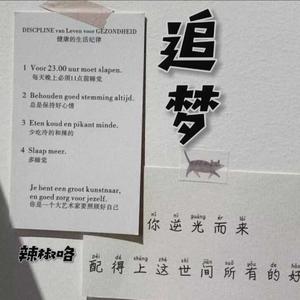 DISCPLINE van Leven voor GEZONDHEID
健康的生活纪律
1 Voor 23.00 uur moet slapen.
每天晚上必须11点前睡觉
2 Behouden goed stemming altijd.
总是保持好心情
3 Eten koud en pikant minde.
少吃冷的和辣的
4 Slaap meer.
多睡觉
Je bent een groot kunstnaar,
en goed zorg voor jezelf.
你是一个大艺术家要照顾好自己
追梦
nǐ nì guāng ér lái
你逆光而来
pèi dé shàng zhè shì jiān suǒ yǒu de hǎo
配得上这世间所有的好
辣椒咯